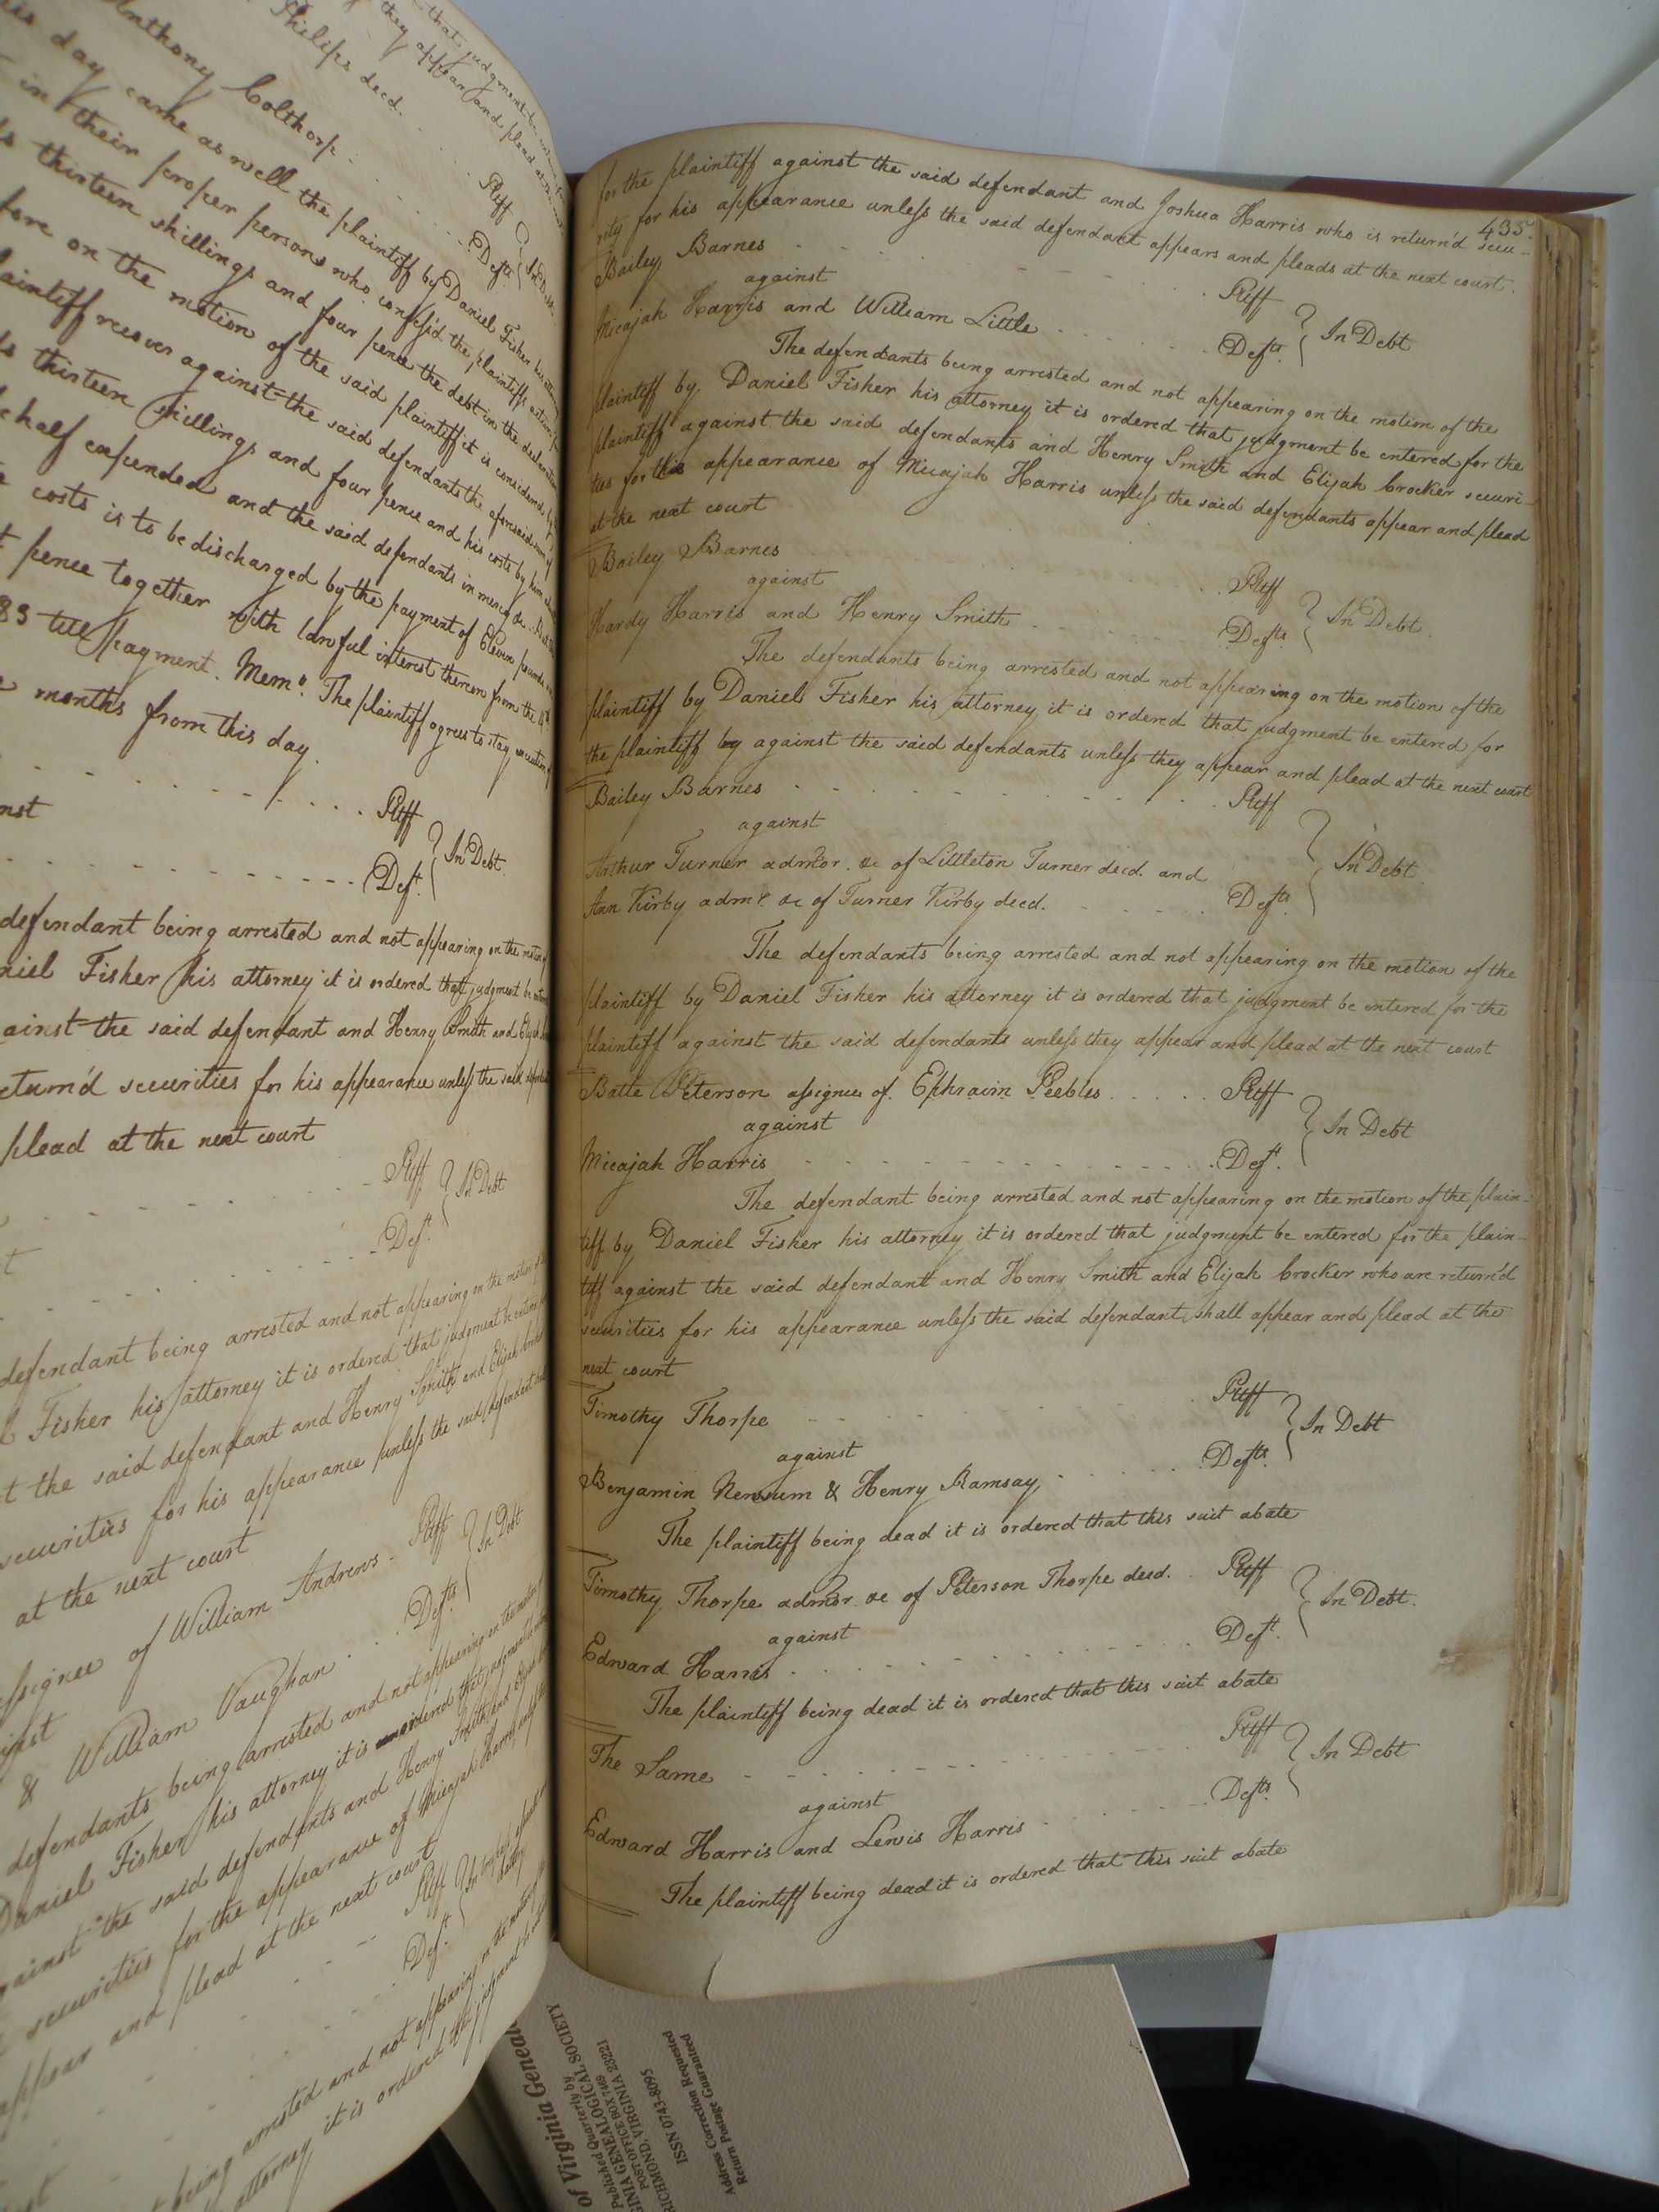 that judgment be
they appear and plead at
Philips decd.
Anthony Colthorp
Pltff
Defts.
In Debt
day came as well the plaintiff by Daniel Fisher his
in their proper persons who confess'd the plaintiffs action
thirteen shillings and four pence the debt in the declaration
fore on the motion of the said plaintiff it is considered by
laintiff recover against the said defendants the aforesaid sum of
thirteen shillings and four pence and his costs by him
half expended and the said defendants in mercy &c.
costs is to be discharged by the payment of Eleven pounds
pence together with lawful interest thereon from the
83 till payment. Memo. The plaintiff agrees to stay execution
months from this day.
Pltff
nst
Deft.
In Debt
defendant being arrested and not appearing on the motion
niel Fisher his attorney it is ordered that judgment be
ainst the said defendant and Henry Smith and
eturn'd securities for his appearance unless the said
plead at the next court
Pltff
In Debt
t
Deft.
defendant being arrested and not appearing on the motion
Fisher his attorney it is ordered that judgment be
t the said defendant and Henry Smith and Elijah
securities for his appearance unless the said defendant
at the next court
ssignee of William Andrews Pltff
In Debt
& William Vaughan Defts.
defendants being arrested and not appearing on the motion
Daniel Fisher his attorney it is ordered that judgment
gainst the said defendants and Henry Smith and
securities for the appearance of Micajah Harris
appear and plead at the next court
Pltff
Deft.
being arrested and not appearing on the motion
attorney it is ordered that judgment be
435
for the plaintiff against the said defendant and Joshua Harris who is return'd secu-
rity for his appearance unless the said defendant appears and pleads at the next court.
Bailey Barnes Pltff
against
In Debt
Micajah Harris and William Little Defts.
The defendants being arrested and not appearing on the motion of the
plaintiff by Daniel Fisher his attorney it is ordered that judgment be entered for the
plaintiff against the said defendants and Henry Smith and Elijah Crocker securi-
ties for the appearance of Micajah Harris unless the said defendants appear and plead
at the next court
Bailey Barnes Pltff
against
In Debt.
Hardy Harris and Henry Smith Defts.
The defendants being arrested and not appearing on the motion of the
plaintiff by Daniel Fisher his attorney it is ordered that judgment be entered for
the plaintiff by against the said defendants unless they appear and plead at the next court
Bailey Barnes Pltff
against
In Debt
Arthur Turner admor. &c of Littleton Turner decd. and
Ann Kirby admx. &c of Turner Kirby decd. Defts.
The defendants being arrested and not appearing on the motion of the
plaintiff by Daniel Fisher his attorney it is ordered that judgment be entered for the
plaintiff against the said defendants unless they appear and plead at the next court
Batte Peterson assignee of Ephraim Peebles Pltff
against
In Debt
Micajah Harris Deft.
The defendant being arrested and not appearing on the motion of the plain-
tiff by Daniel Fisher his attorney it is ordered that judgment be entered for the plain-
tiff against the said defendant and Henry Smith and Elijah Crocker who are return'd
securities for his appearance unless the said defendant shall appear and plead at the
next court
Timothy Thorpe Pltff
against
In Debt
Benjamin Newsum & Henry Ramsay Defts.
The plaintiff being dead it is ordered that this suit abate
Timothy Thorpe admor. &c of Peterson Thorpe decd. Pltff
against
In Debt.
Edward Harris Deft.
The plaintiff being dead it is ordered that this suit abate
The Same Pltff
against
In Debt
Edward Harris and Lewis Harris Defts.
The plaintiff being dead it is ordered that this suit abate
of Virginia Geneal
Published Quarterly by
GINIA GENEALOGICAL SOCIETY
POST OFFICE BOX 7469
RICHMOND, VIRGINIA 23221
ISSN 0743-8095
Address Correction Requested
Return Postage Guaranteed